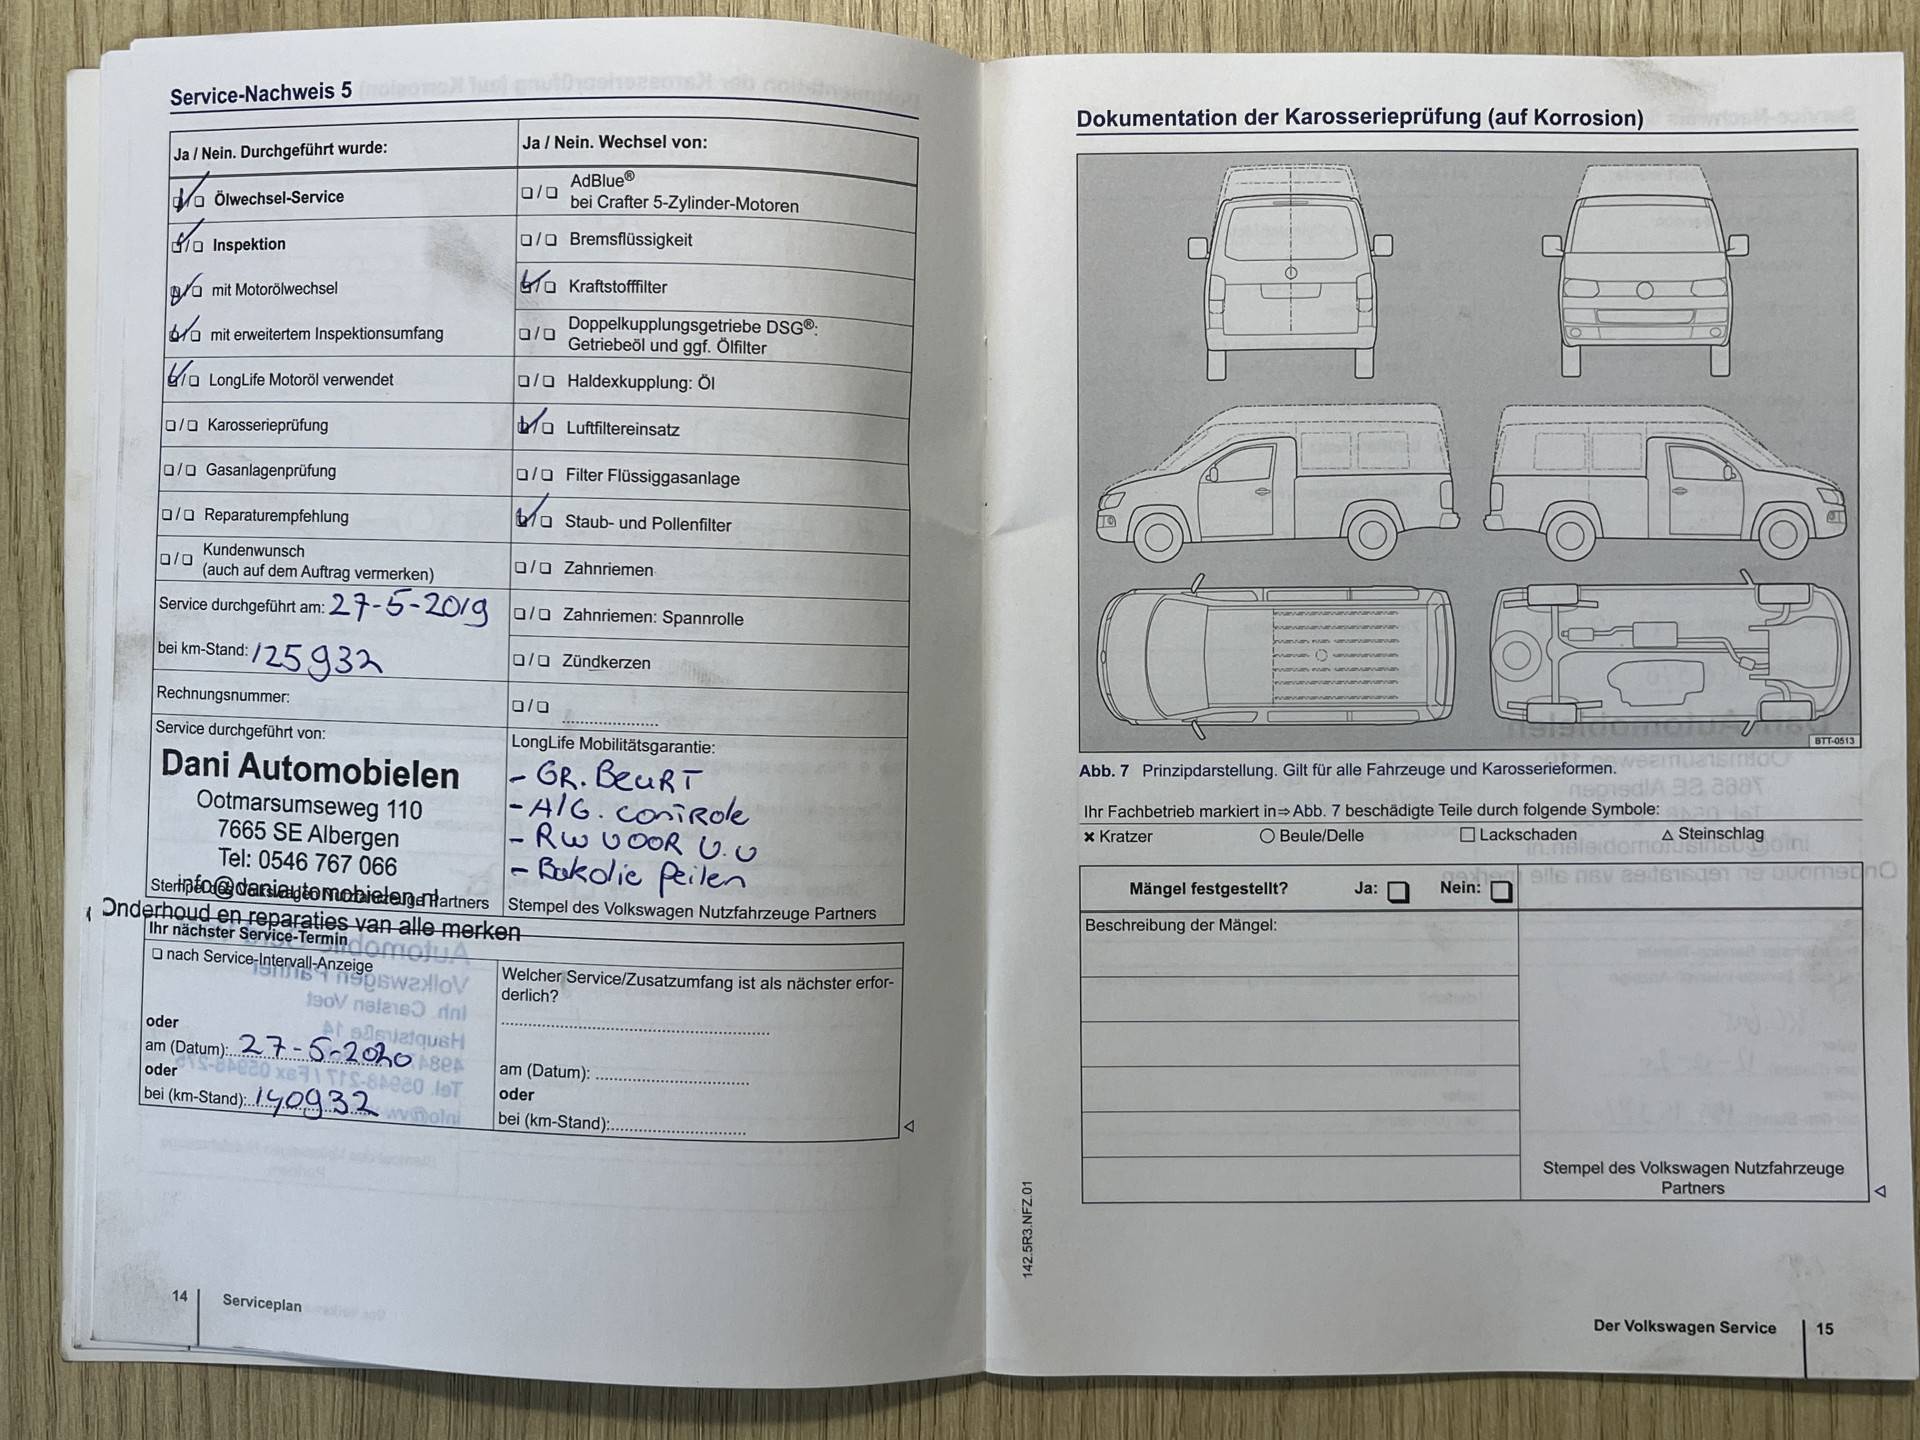 Service-Nachweis 5
Ja / Nein. Durchgeführt wurde:
Ölwechsel-Service
Inspektion
mit Motorölwechsel
mit erweitertem Inspektionsumfang
LongLife Motoröl verwendet
Karosserieprüfung
Gasanlagenprüfung
Reparaturempfehlung
Kundenwunsch
(auch auf dem Auftrag vermerken)
Service durchgeführt am: 27-5-2019
bei km-Stand: 125932
Rechnungsnummer:
Service durchgeführt von:
Dani Automobielen
Ootmarsumseweg 110
7665 SE Albergen
Tel: 0546 767 066
info@daniautomobielen.nl
Stempel des Volkswagen Nutzfahrzeuge Partners
Onderhoud en reparaties van alle merken
Ja / Nein. Wechsel von:
AdBlue®
bei Crafter 5-Zylinder-Motoren
Bremsflüssigkeit
Kraftstofffilter
Doppelkupplungsgetriebe DSG®:
Getriebeöl und ggf. Ölfilter
Haldexkupplung: Öl
Luftfiltereinsatz
Filter Flüssiggasanlage
Staub- und Pollenfilter
Zahnriemen
Zahnriemen: Spannrolle
Zündkerzen
LongLife Mobilitätsgarantie:
- GR. BEURT
- A/G. CONTROLE
- RW VOOR V.V
- Bakdie Peilen
Stempel des Volkswagen Nutzfahrzeuge Partners
Ihr nächster Service-Termin
nach Service-Intervall-Anzeige
oder
am (Datum): 27-5-2020
oder
bei (km-Stand): 140932
Welcher Service/Zusatzumfang ist als nächster erfor-
derlich?
am (Datum):
oder
bei (km-Stand):
14 Serviceplan
Dokumentation der Karosserieprüfung (auf Korrosion)
BTT-0513
Abb. 7 Prinzipdarstellung. Gilt für alle Fahrzeuge und Karosserieformen.
Ihr Fachbetrieb markiert in⇒ Abb. 7 beschädigte Teile durch folgende Symbole:
× Kratzer ○ Beule/Delle □ Lackschaden △ Steinschlag
Mängel festgestellt? Ja: Nein:
Beschreibung der Mängel:
Stempel des Volkswagen Nutzfahrzeuge
Partners
142.5R3.NFZ.01
Der Volkswagen Service 15